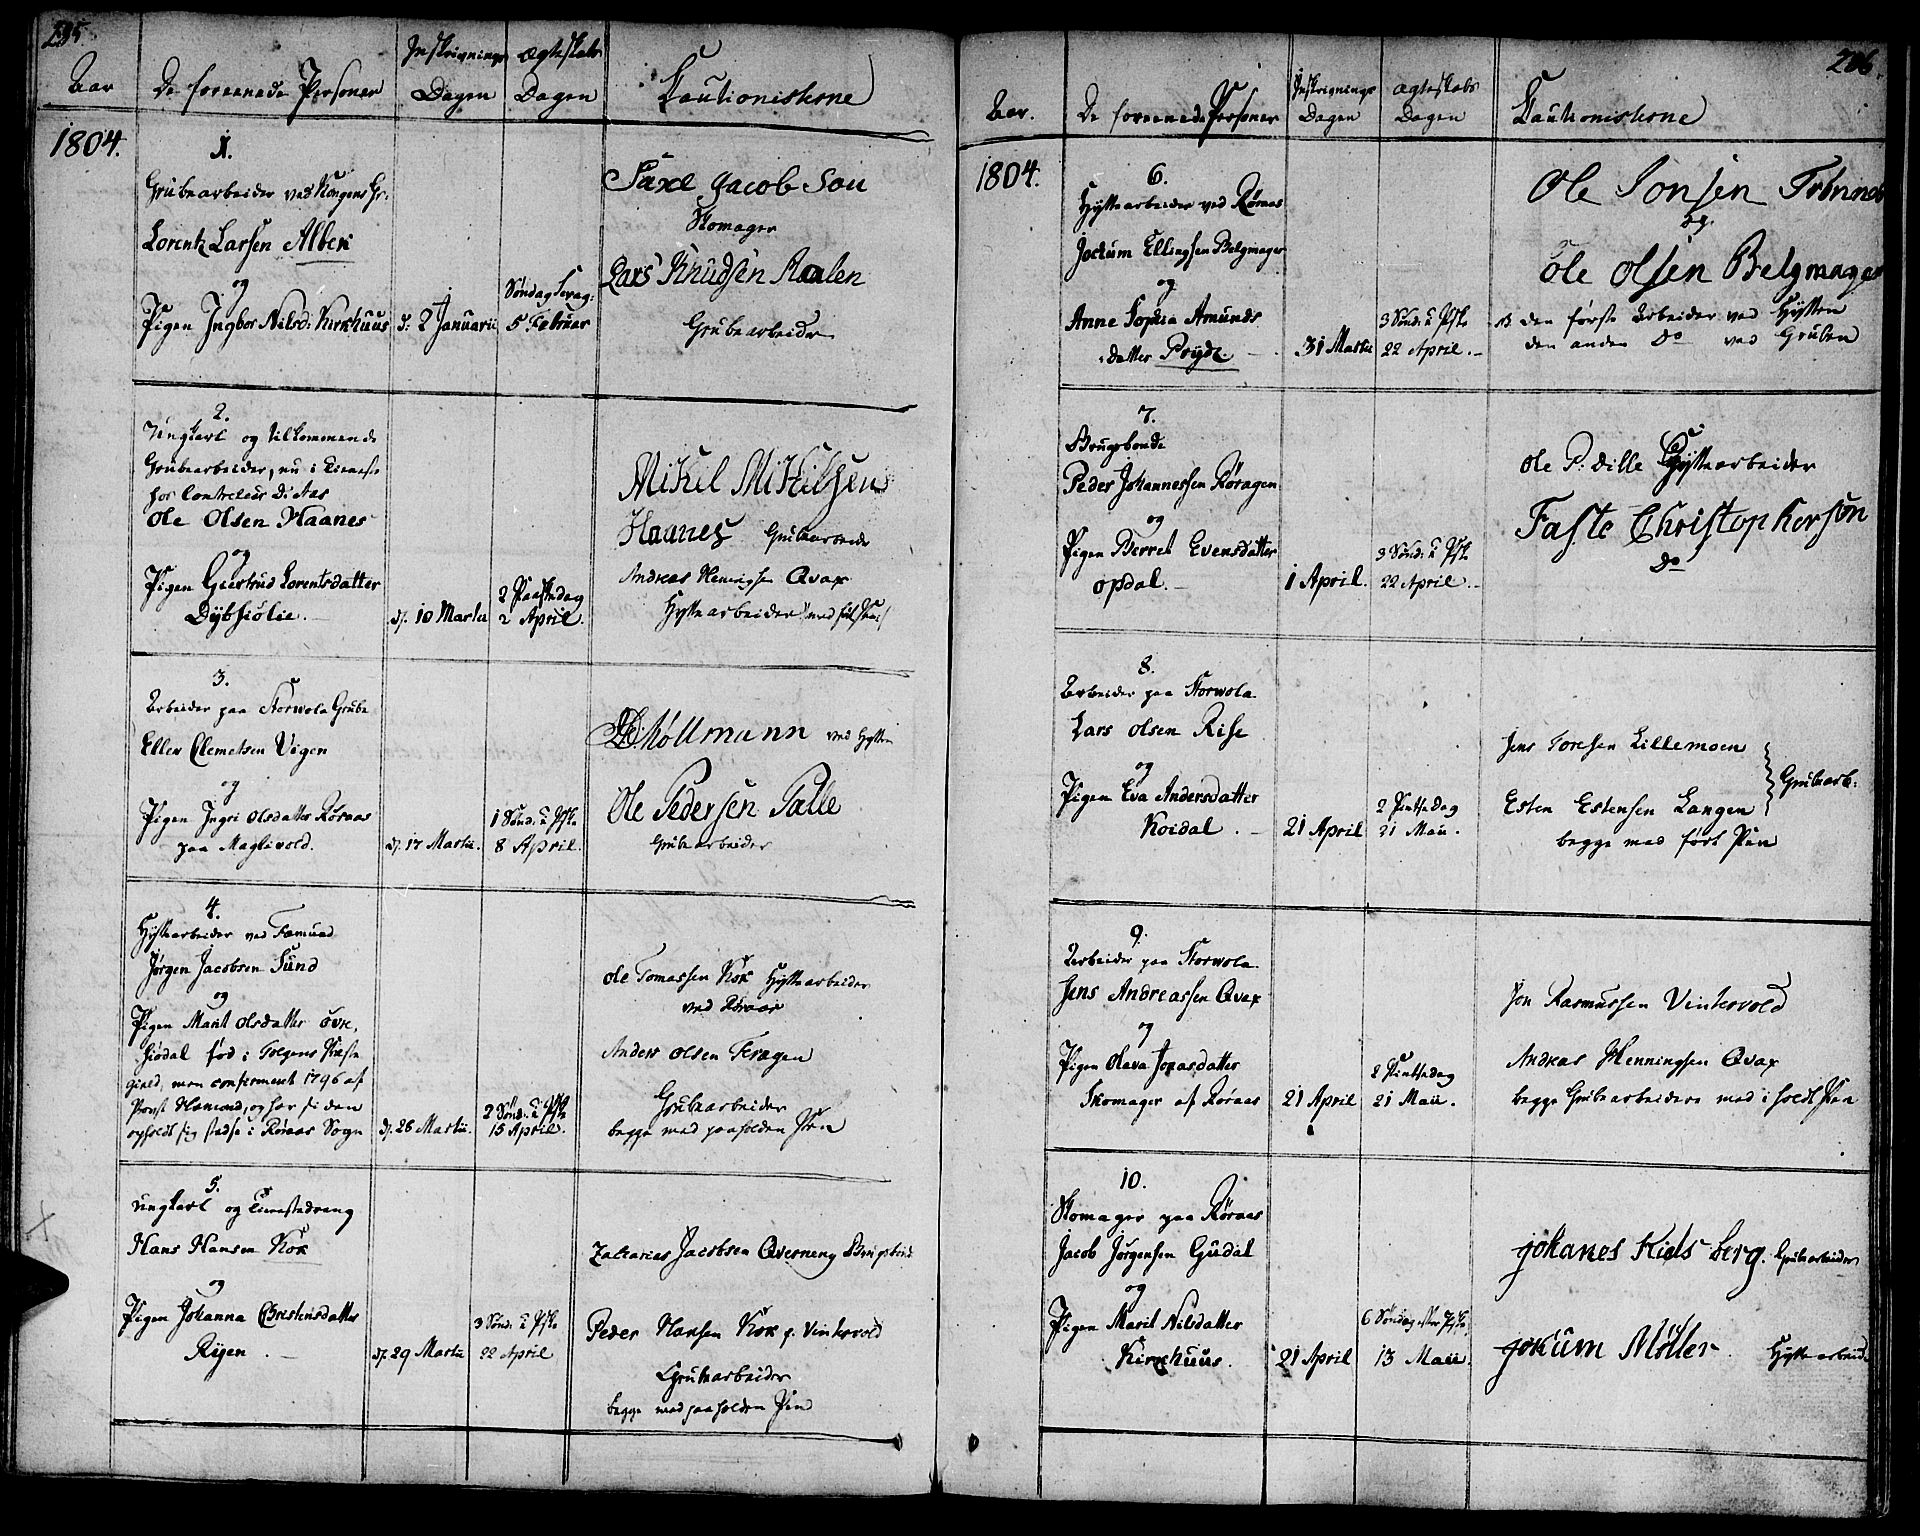 205.
Aar
De foreenede Personer
Inskrivnings
Dagen
Ægteskabs
Dagen
Cautionisterne
1804.
1.
Grubearbeider ved Kongens Gr:
Lorentz Larsen Alben
og
Pigen Ingbor Nilsd: Kirkhuus
d: 2 Januarii
5 Februar
Saxe Jacob Son
Skomager
Lars Knudsen Aalen
Grubearbeider
2.
Ungkarl og tilkommende
Grubearbeider, nu i Tieneste
hos Controleur Ditas
Ole Olsen Haanes
og
Pigen Giertrud Lorentsdatter
Dybsiölie.
d. 10 Martii
2 Paaskedag
2 April.
Mikel Mikkelsen
Haanes Grubearbeider
Andreas Heningsen Qvax
Hyttearbeider
3.
Arbeider paa Storwola Grube
Eller Clemetsen Vigen
og
Pigen Ingri Olsdatter Røraas
paa Maglivold.
d. 17 Martii.
1 Sønd: e Pske
8 April.
Möllmann ved Hytten
Ole Pedersen Galle
Grubearbeider
4.
Hyttearbeider ved Fæmund
Jørgen Jacobsen Sund
og
Pigen Marit Olsdatter Øvr,
siödal föd i Tolgens Præste
gield, men confirmeret 1796 af
Provst Hamond, og har siden
opholdt sig stedse i Røraas Sogn
d. 28 Martii.
2 Sønd: e Pske
15 April.
Ole Tomassen Kok Hyttearbeider
ved Røraas
Anders Olsen Feragen
Grubearbeider
begge med paaholden Pen
5.
Ungkarl og Tienestedreng
Hans Hansen Kok
og
Pigen Johanna Christensdatter
Rygen.
d. 29 Martii
3 Sønd: e Pske
22 April
Zakarias Jacobsen Qverneng
Peder Hansen Kok p. Vintervold
Grubearbeider
begge med paaholden Pen
206.
Aar.
De foreenede Personer
Inskrivnings
Dagen
Ægteskabs
Dagen
Cautionisterne
1804.
6.
Hyttearbeider ved Røraas
Jochum Ellingsen Belgmager
og
Anne Sophia Amunds
datter Prydz.
31 Martii
3 Sønd: e Pske
22 April.
Ole Jonsen
og
Ole Olsen Belgmager
NB den første Arbeider ved Hytten
den anden Do ved Gruben
7.
Brugsbonde
Peder Johannessen Røragen
og
Pigen Berret Evensdatter
Opdal.
1 April.
3 Sønd: e Pske
22 April.
Ole P: Dille Hyttearbeider
Faste Christophersøn
Do
8.
Arbeider paa Storwola
Lars Olsen Rise
og
Pigen Eva Andersdatter
Koidal.
21 April
2 Pintsedag
21 Maii.
Jens Toresen Lillemoen
Esten Estensen Langen
Grubearb:
begge med fört Pen
9.
Arbeider paa Storwola
Jens Andreassen Qvax
og
Pigen Olava Jonasdatter
Skomager af Røraas
21 April
2 Pintsedag
21 Maii.
Jon Rasmussen Vintervold
Andreas Henningsen Qvax
begge Grubearbeidere med iholdt Pen
10.
Skomager paa Røraas
Jacob Jørgensen Gudal
og
Pigen Marit Nilsdatter
Kirkhuus.
21 April
6 Søndag efter Pske
13 Maii.
Johanes Kiels berg. Grubearbeider
Jokum Møller Hyttearbeid.